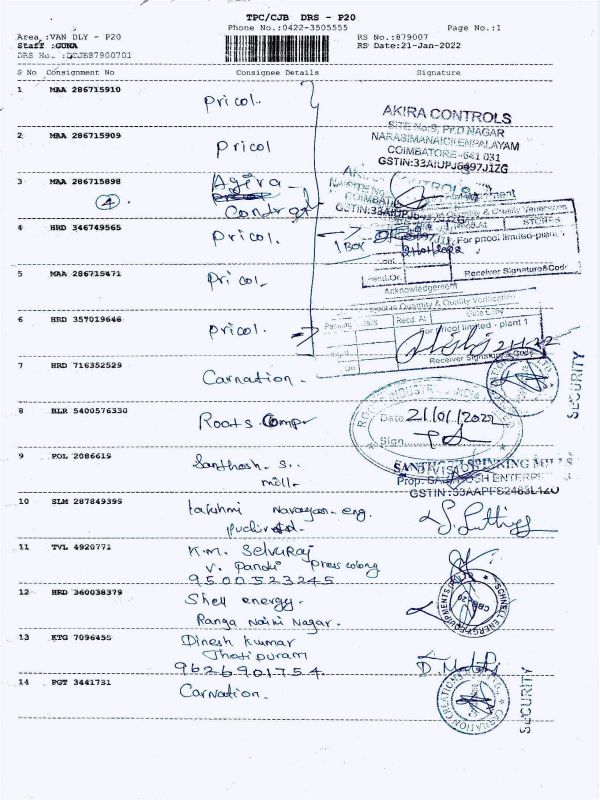 TPC/CJB DRS - P20
Phone No.:0422-3505555
Page No.:1
Area :VAN DLY - P20
RS No.:879007
Staff :GUNA
RS Date:21-Jan-2022
DRS No. :DCJB87900701
S No Consignment No Consignee Details Signature
1 MAA 286715910 Pricol.
AKIRA CONTROLS
SITE No:9, PKD NAGAR
NARASIMANAICKENPALAYAM
COIMBATORE-641 031
GSTIN:33AIUPJ6497J1ZG
2 MAA 286715909 Pricol
3 MAA 286715898
4
4 HRD 346749565 Pricol.
1 Box
21/01/2022
For pricol limited-plant 1
Receiver Signature&Code
5 MAA 286715471 Pricol
Acknowledgement
Quantity & Quality Verification
Recd. At
6 HRD 357019646 Pricol.
For pricol limited - plant 1
Receiver Signature & Code
7 HRD 716352529 Carnation.
SECURITY
8 BLR 5400576330 Roots Comp
ROOTS INDUSTRIES INDIA
Date 21/01/2022
Sign
9 POL 2086619 Santhosh. S..
mill.
SPINNING MILLS
10 SLM 287849399 Lakshmi Narayan. eng.
11 TVL 4920771 K.M. Selvaraj
V. Pandi Press colony
9500523245
12 HRD 360038379 Shell energy.
Ranga Naiki Nagar.
13 KTG 7096455 Dinesh Kumar
Jhotipuram
9626901754.
14 PGT 3441731 Carnation.
SECURITY